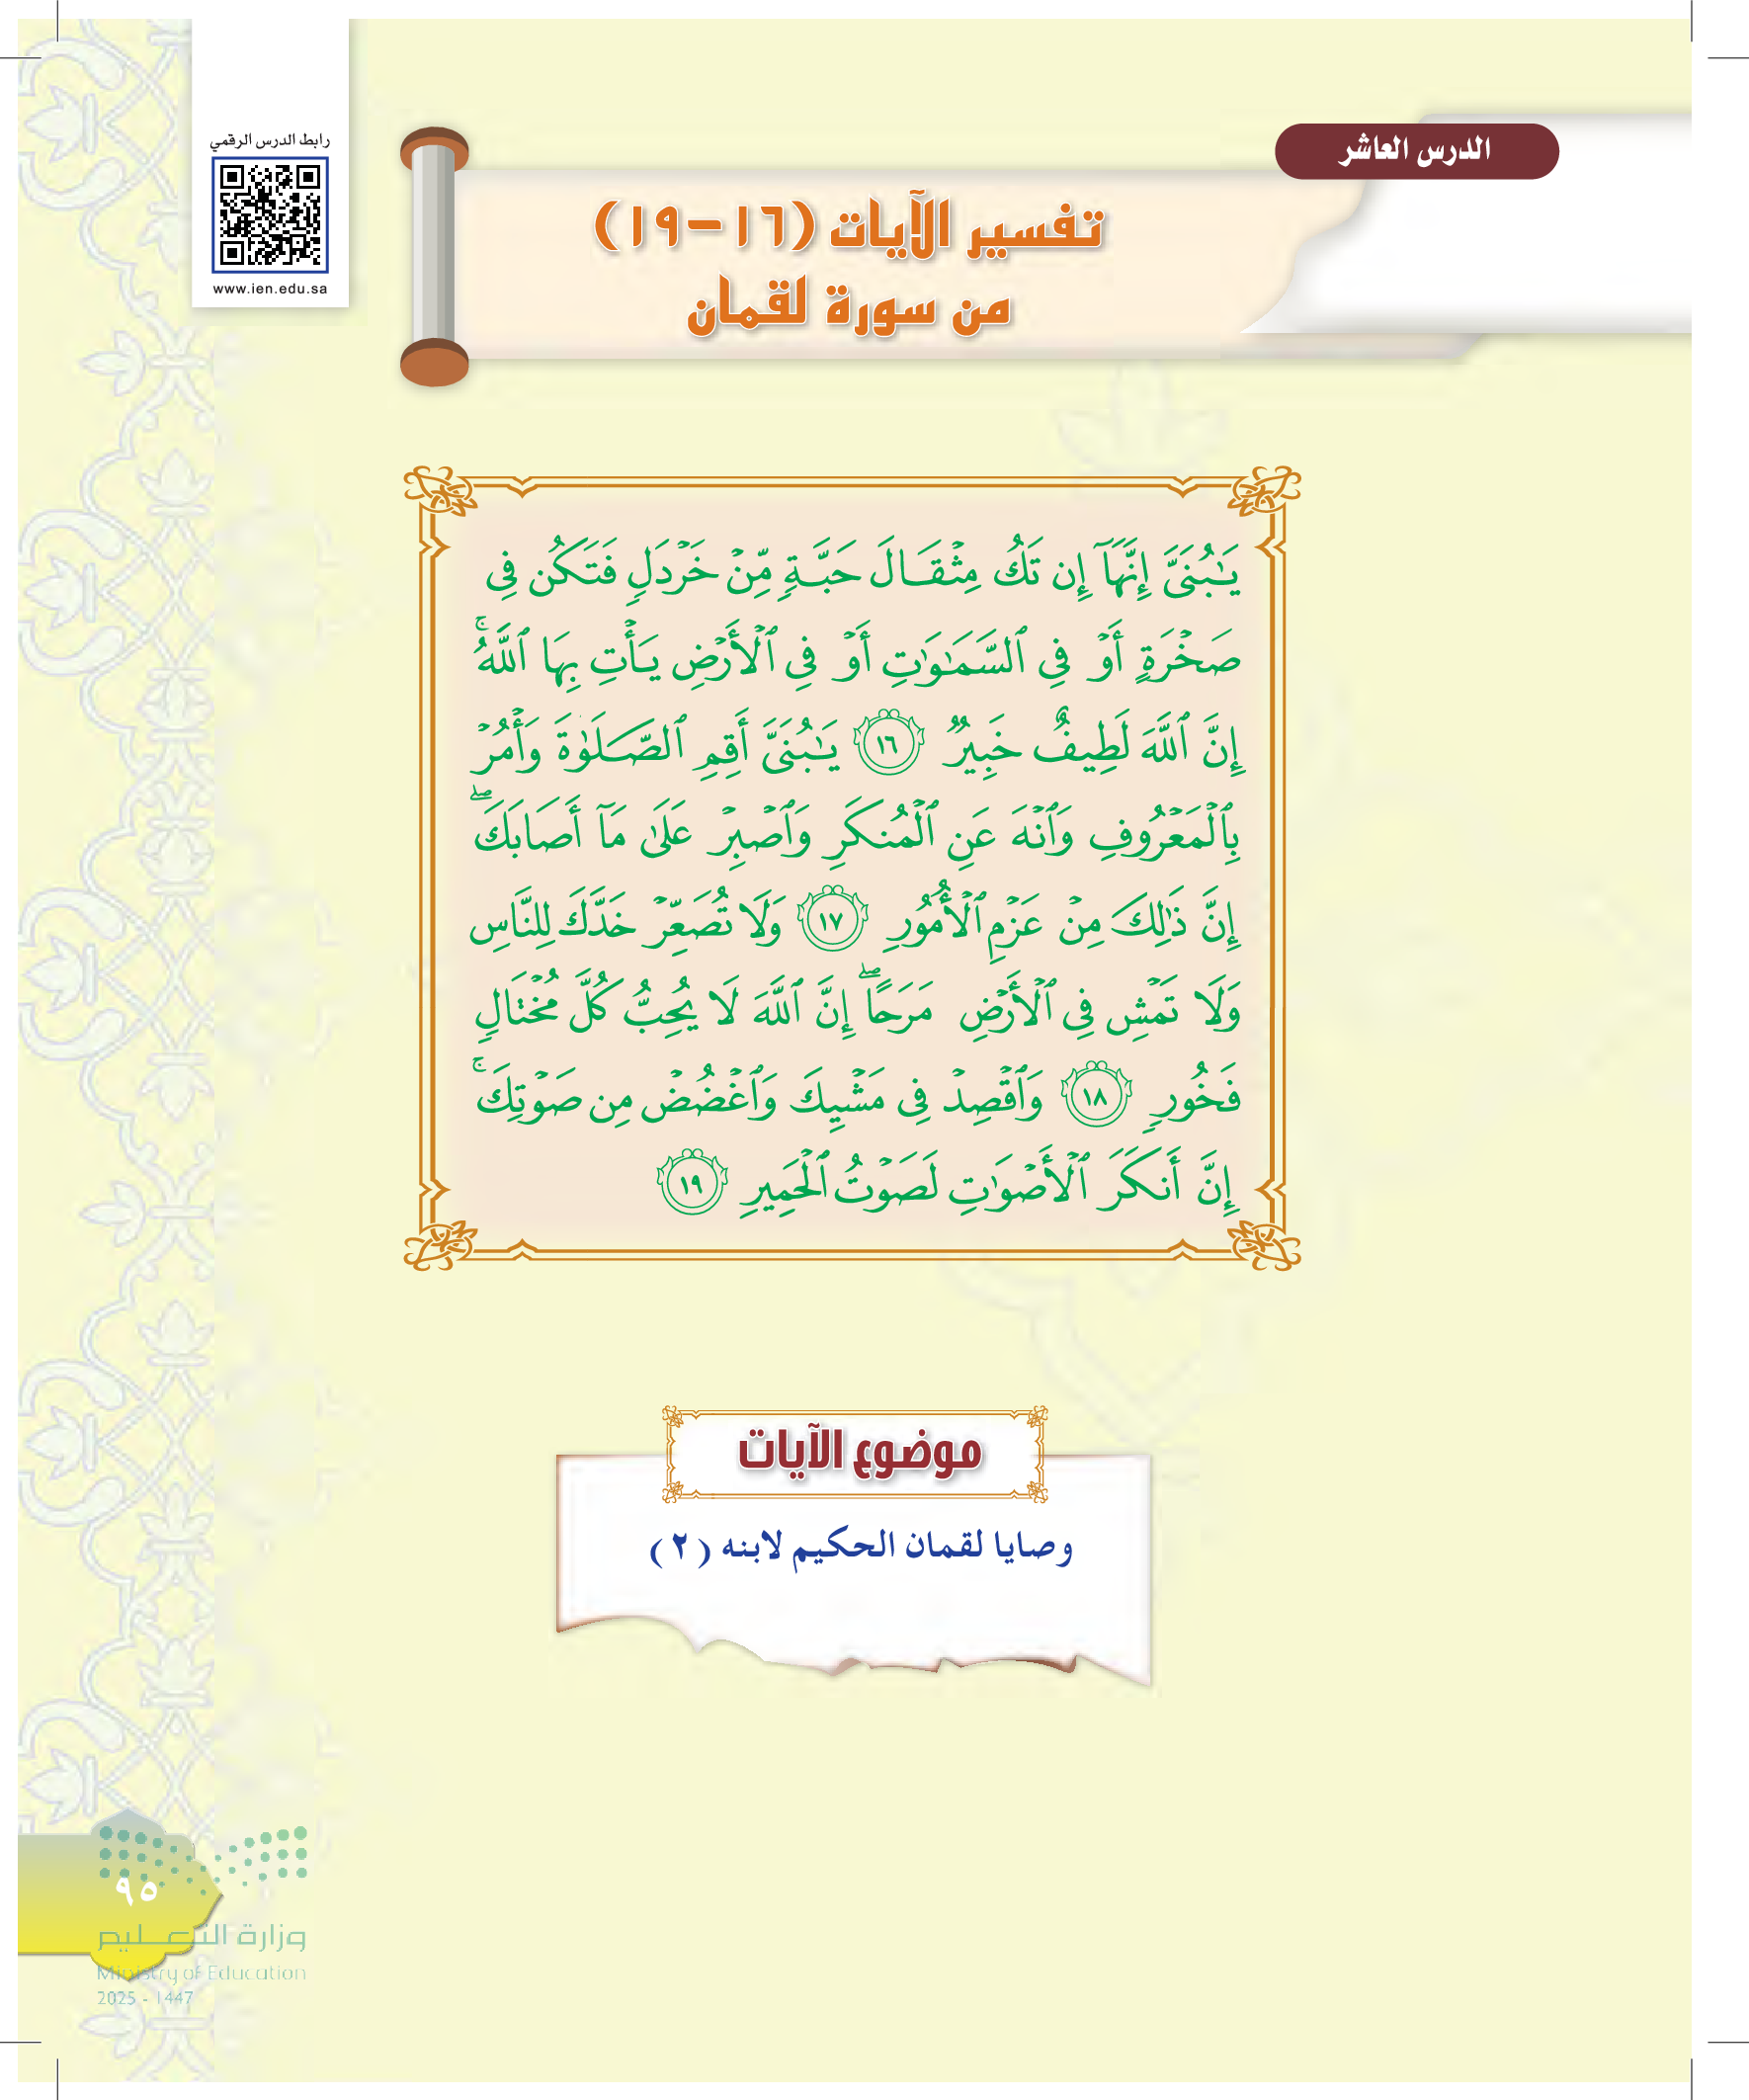 الدرس العاشر
رابط الدرس الرقمي
www.ien.edu.sa
تفسير الآيات (١٦-١٩)
من سورة لقمان
يَـٰبُنَىَّ إِنَّهَآ إِن تَكُ مِثْقَالَ حَبَّةٍ مِّنْ خَرْدَلٍ فَتَكُن فِى
صَخْرَةٍ أَوْ فِى ٱلسَّمَـٰوَٰتِ أَوْ فِى ٱلْأَرْضِ يَأْتِ بِهَا ٱللَّهُ ۚ
إِنَّ ٱللَّهَ لَطِيفٌ خَبِيرٌ ١٦ يَـٰبُنَىَّ أَقِمِ ٱلصَّلَوٰةَ وَأْمُرْ
بِٱلْمَعْرُوفِ وَٱنْهَ عَنِ ٱلْمُنكَرِ وَٱصْبِرْ عَلَىٰ مَآ أَصَابَكَ ۖ
إِنَّ ذَٰلِكَ مِنْ عَزْمِ ٱلْأُمُورِ ١٧ وَلَا تُصَعِّرْ خَدَّكَ لِلنَّاسِ
وَلَا تَمْشِ فِى ٱلْأَرْضِ مَرَحًا ۖ إِنَّ ٱللَّهَ لَا يُحِبُّ كُلَّ مُخْتَالٍ
فَخُورٍ ١٨ وَٱقْصِدْ فِى مَشْيِكَ وَٱغْضُضْ مِن صَوْتِكَ ۚ
إِنَّ أَنكَرَ ٱلْأَصْوَٰتِ لَصَوْتُ ٱلْحَمِيرِ ١٩
موضوع الآيات
وصايا لقمان الحكيم لابنه (٢)
٩٥
وزارة التعليم
Ministry of Education
2025 - 1447